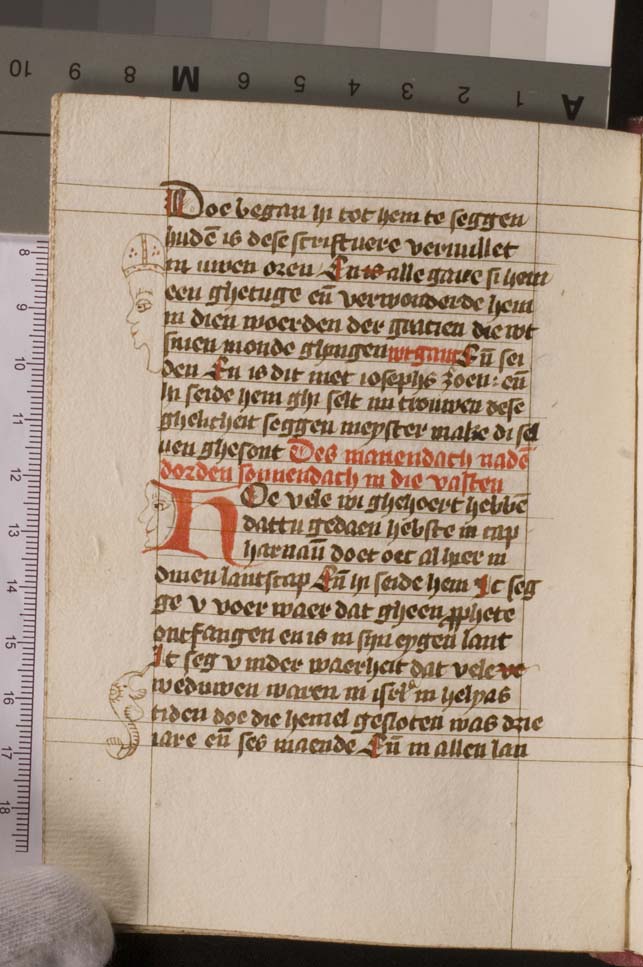 10 9 8 M 6 5 4 3 2 1 A
Doe began hi tot hem te seggen
hudē is dese scriftuere vervullet
in uwen oren En is alle gave si hem
een ghetuge eñ verwonderde hem
in dien woerden der gratien die wt
sinen monde ghingen wtganc Eñ sei
den En is dit niet iosephs zoen: eñ
hi seide hem ghi selt mi trouwen dese
ghelicheit seggen meyster make di sel
ven ghesont Des manendach nadē
dorden sonnendach in die vasten
HOe vele wi ghehoert hebbē
dattu gedaen hebste in cap
harnaū doet oec al hier in
dinen lantscap Eñ hi seide hem Ic seg
ge v voer waer dat gheen ꝓphete
ontfangen en is in sijn eygen lant
Ic seg v inder waerheit dat vele we
weduwen waren in isrl' in helyas
tiden doe die hemel gesloten was drie
iare eñ ses maende Eñ in allen lan
8
9
10
11
12
13
14
15
16
17
18